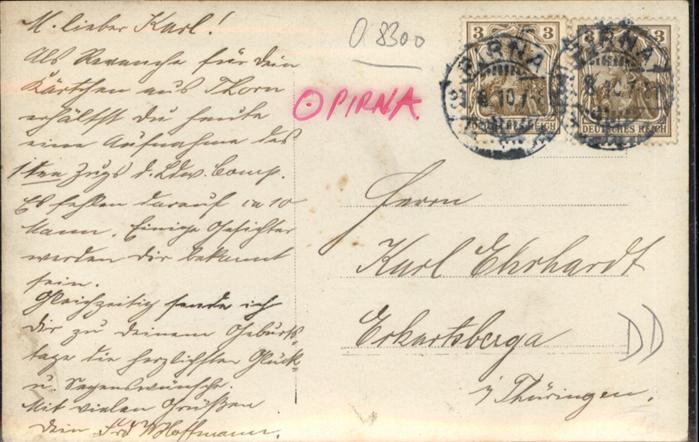 M. lieber Karl!
Als Revanche für dein
Kärtchen aus Thorn
erhältst du heute
eine Aufnahme des
1ten Zugs d. Ldw. Comp.
Es fehlen darauf ca 10
Mann. Einige Gesichter
werden dir bekannt
sein.
Gleichzeitig sende ich
dir zu deinem Geburts-
tage die herzlichsten Glück-
u. Segenswünsche.
Mit vielen Grüßen
Dein Hoffmann.
0 8300
PIRNA.
3 3
PIRNA
PIRNA
DEUTSCHES REICH
DEUTSCHES REICH
Herrn
Karl Ehrhardt
Eckartsberga
i/Thüringen.
DD